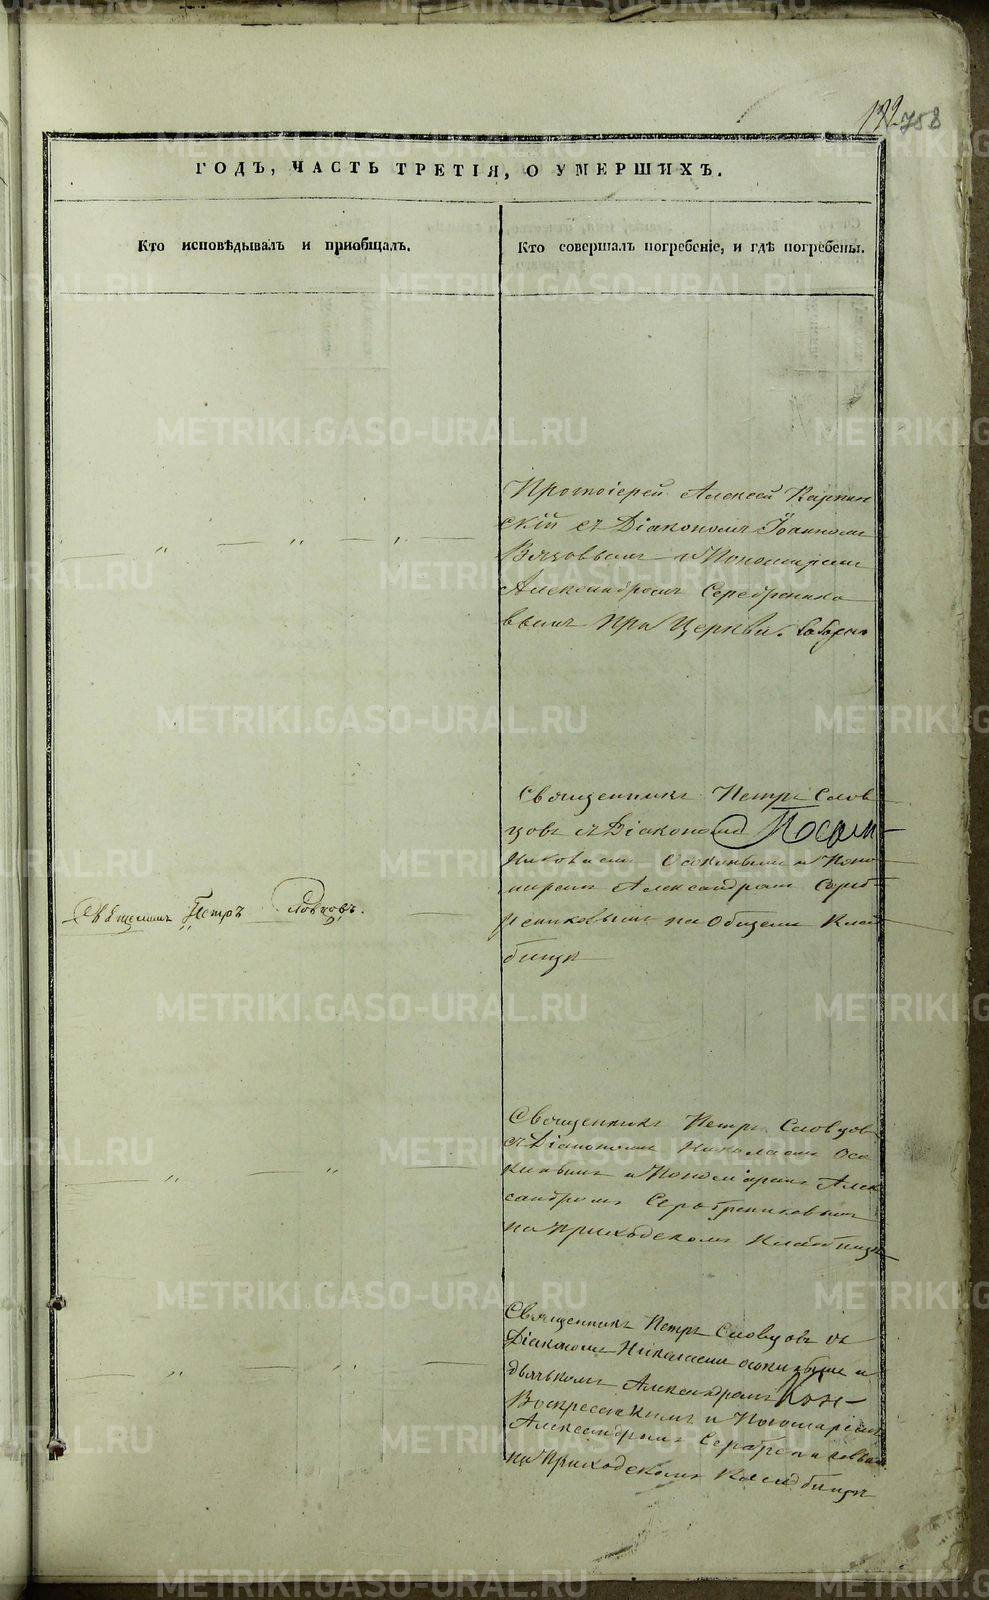 758
ГОДЪ, ЧАСТЬ ТРЕТІЯ, О УМЕРШИХЪ.
Кто исповѣдывалъ и пріобщалъ.
Кто совершалъ погребеніе, и гдѣ погребены.
Протоіерей Алексей Карпин
скій съ Діакономъ Іоанномъ
и Пономаремъ
Александромъ Серебренико
вымъ при Церкви.
Священникъ Петръ Слов
цовъ съ Діакономъ
Николаемъ Осокинымъ и Поно
маремъ Александромъ Сереб
рениковымъ на Общемъ Клад
бищѣ
Священникъ Петръ Словцовъ.
Священникъ Петръ Словцовъ
съ Діакономъ Николаемъ Осо
кинымъ и Пономаремъ Алек
сандромъ Серебрениковымъ
на Приходскомъ Кладбищѣ
Священникъ Петръ Словцовъ съ
Діакономъ Николаемъ Осокинымъ и
дьячькомъ Александромъ
Воскресенскимъ и Пономаремъ
Александромъ Серебрениковымъ
на Приходскомъ Кладбищѣ
METRIKI.GASO-URAL.RU